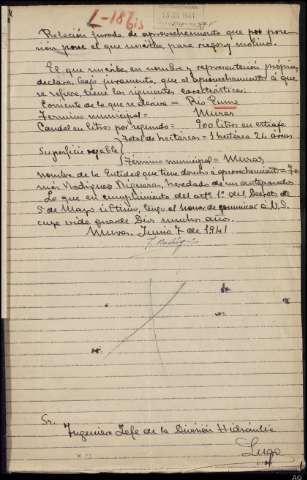 L-186is
Relación jurada de aprovechamiento que por pose-
sión posee el que suscribe para riegos y molino.
El que suscribe en nombre y representación propia,
declara bajo juramento, que el aprovechamiento á que
se refiere, tiene las siguientes características.
Corriente de la que se deriva = Río Eume
Término municipal = Muras
Caudal en litros por segundo = 100 litros en estiaje
Total de hectáreas = 1 hectárea 26 áreas
Superficie regable
Término municipal = Muras
Nombre de la Entidad que tiene derecho a aprovechamiento = To-
más Rodríguez Migueras, heredado de sus antepasados
Lo que en cumplimiento del artº 1º del Decreto de
5 de Mayo último, tengo el honor de comunicar a V.S.
cuya vida guarde Dios muchos años.
Muras, Junio 7 de 1941
T. Rodríguez
Sr.
Ingeniero Jefe de la División Hidráulica
Lugo